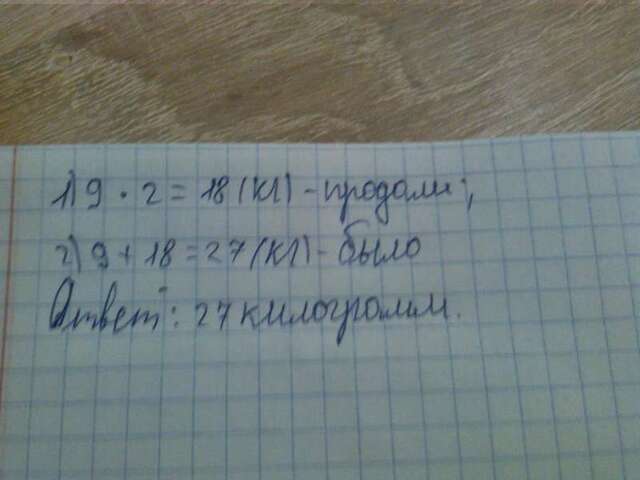 1) 9 · 2 = 18 (кг) - продали;
2) 9 + 18 = 27 (кг) - было
Ответ: 27 килограмм.